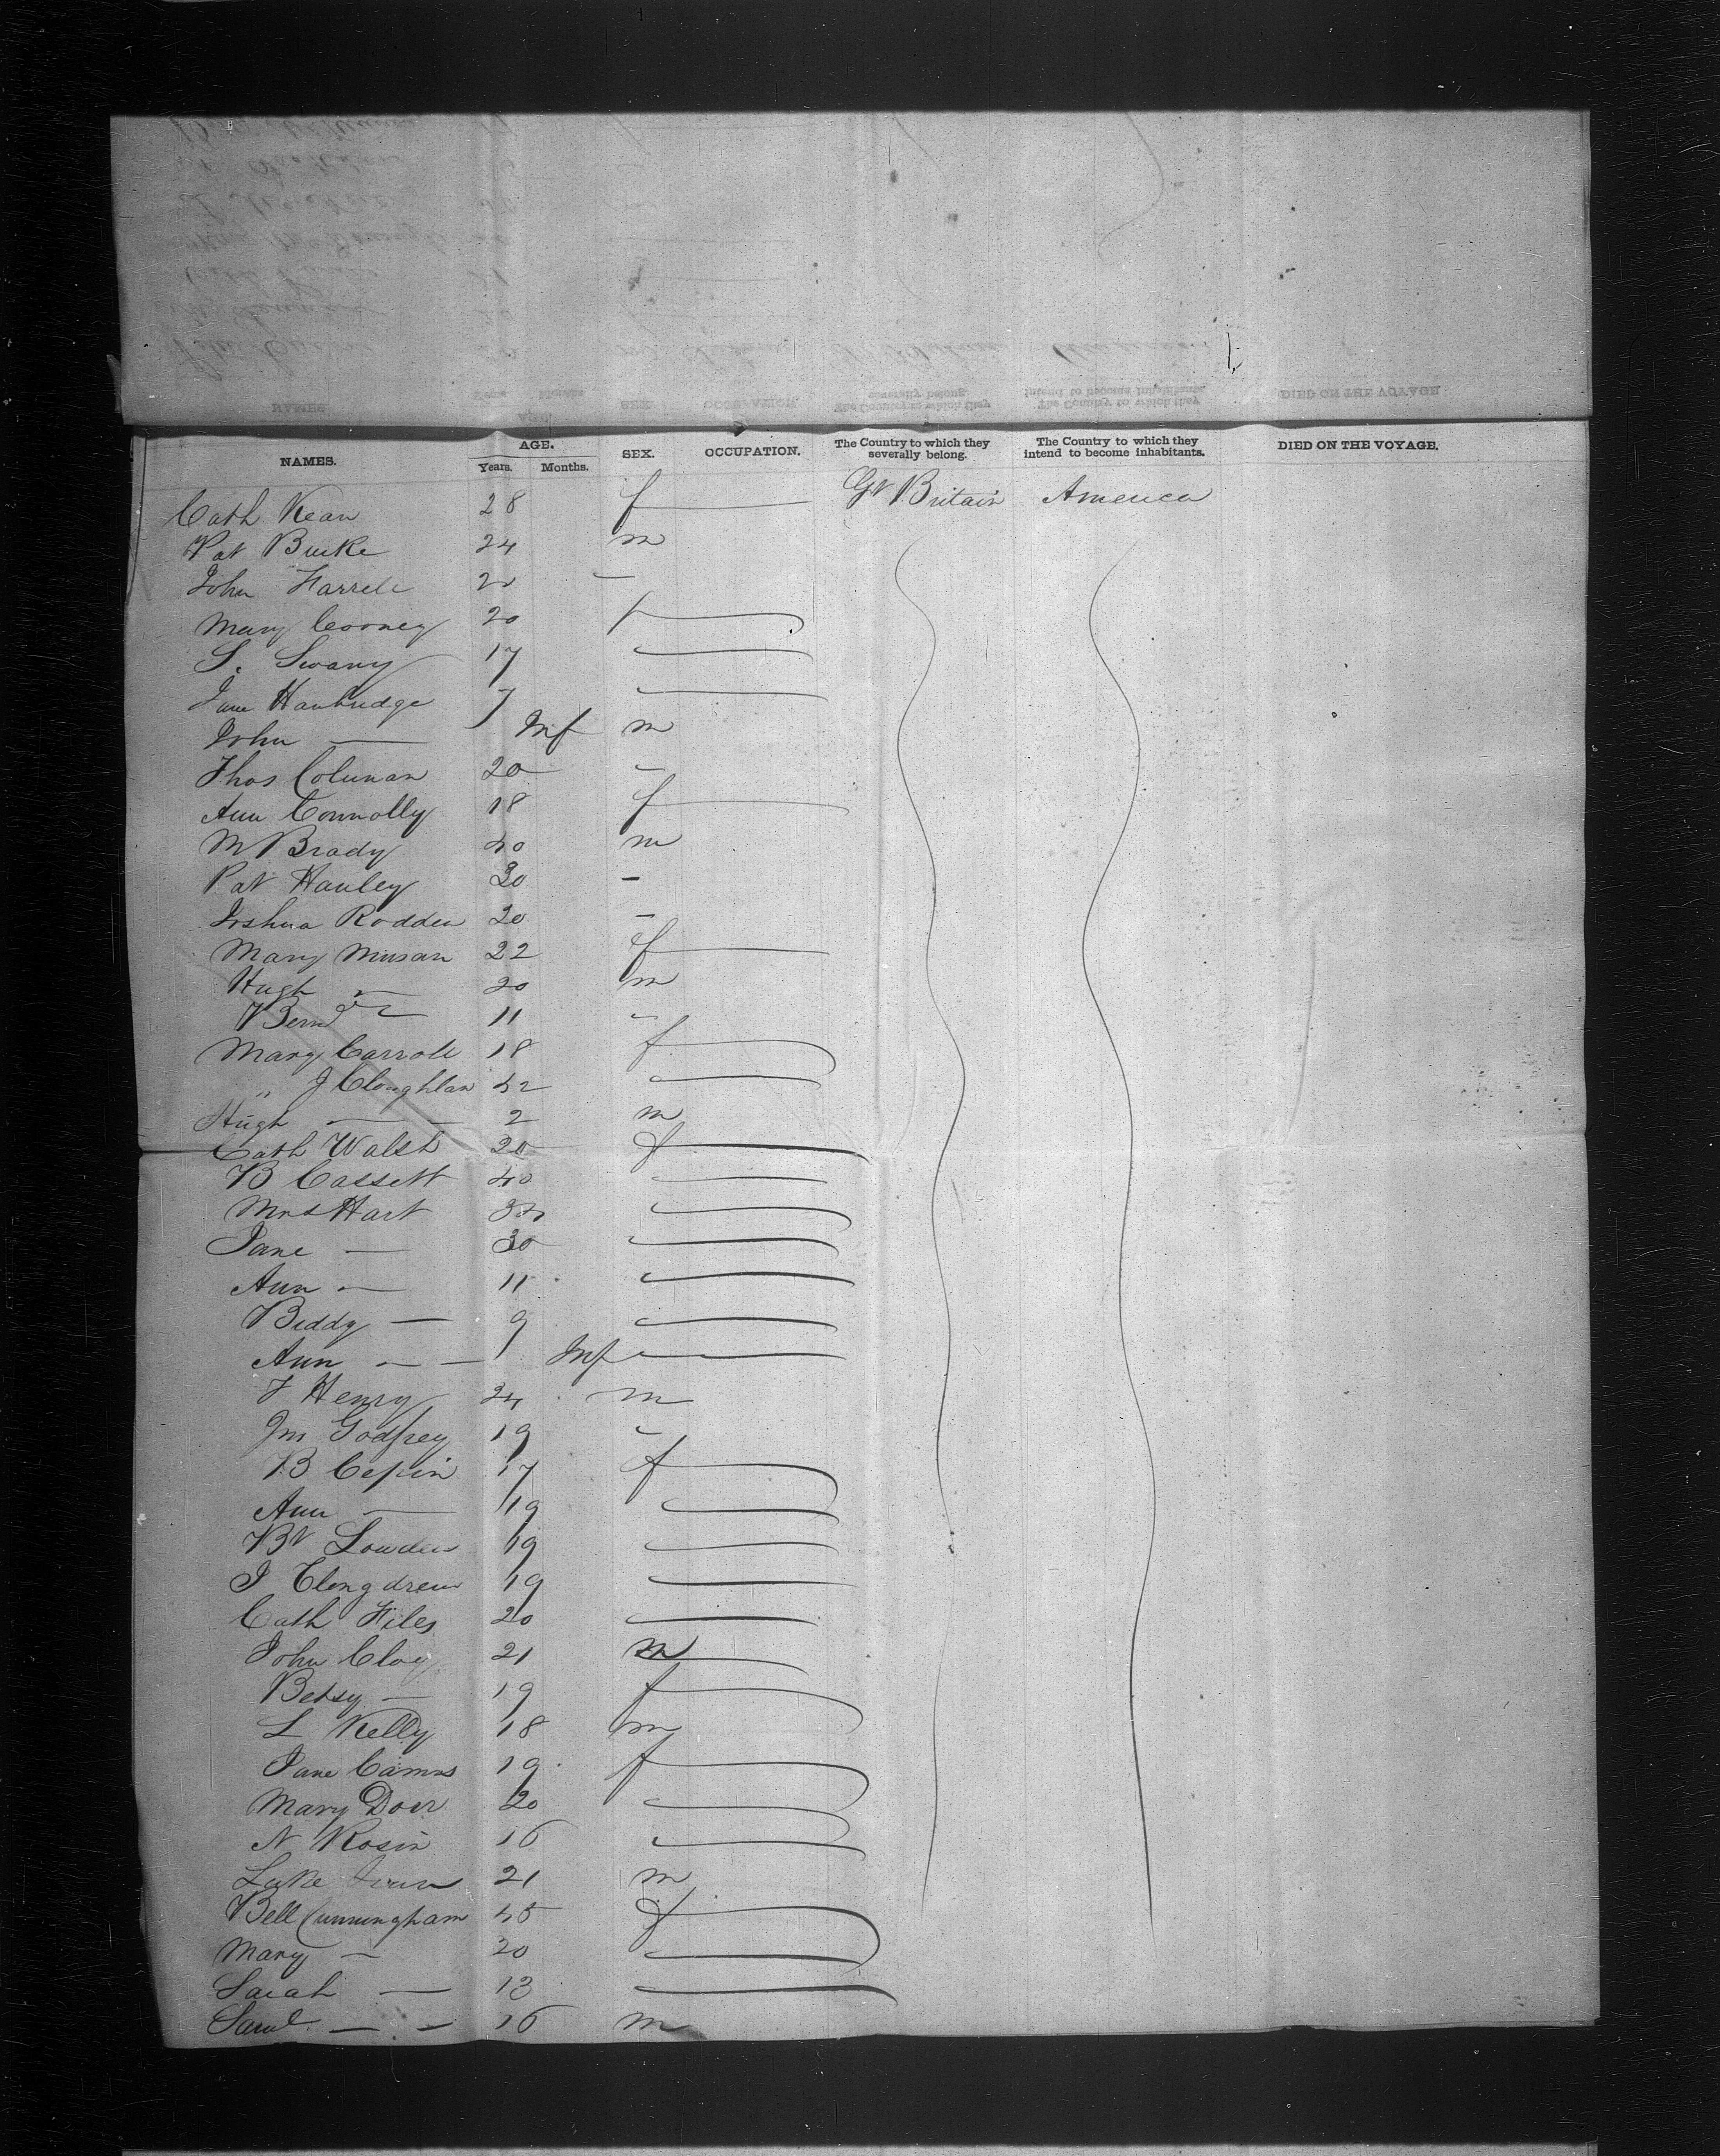 NAMES. AGE. Years. Months. SEX. OCCUPATION. The Country to which they severally belong. The Country to which they intend to become inhabitants. DIED ON THE VOYAGE.
Cath Kean 28 f Gt Britain America
Pat Burke 24 m
John Farrell 20 —
Mary Cooney 20 f
S. Swany 17
Jane Hanbridge 7
John — Inf m
Thos Colunan 20 —
Ann Connolly 18 f
M Brady 40 m
Pat Hanley 30 —
Joshua Rodden 20 —
Mary Minsan 22 f
Hugh — 20 m
Bernd — 11 —
Mary Carroll 18 f
" J Cloughlan 42
Hugh — 2 m
Cath Walsh 20 f
B Cassett 40
Mrs Hart 34
Jane — 30
Ann — 11
Biddy — 9
Ann — — Inf
F Henry 24 m
Jm Godfrey 19 —
B Cepin 17 f
Ann — 19
Bt Lowden 19
J Clongdrew 19
Cath Files 20
John Cloy 21 m
Betsy — 19 f
L Kelly 18 m
Jane Cairns 19 f
Mary Doer 20
N Rosin 16
Luke 21 m
Bell Cunningham 45 f
Mary — 20
Sarah — 13
Saml — — 16 m